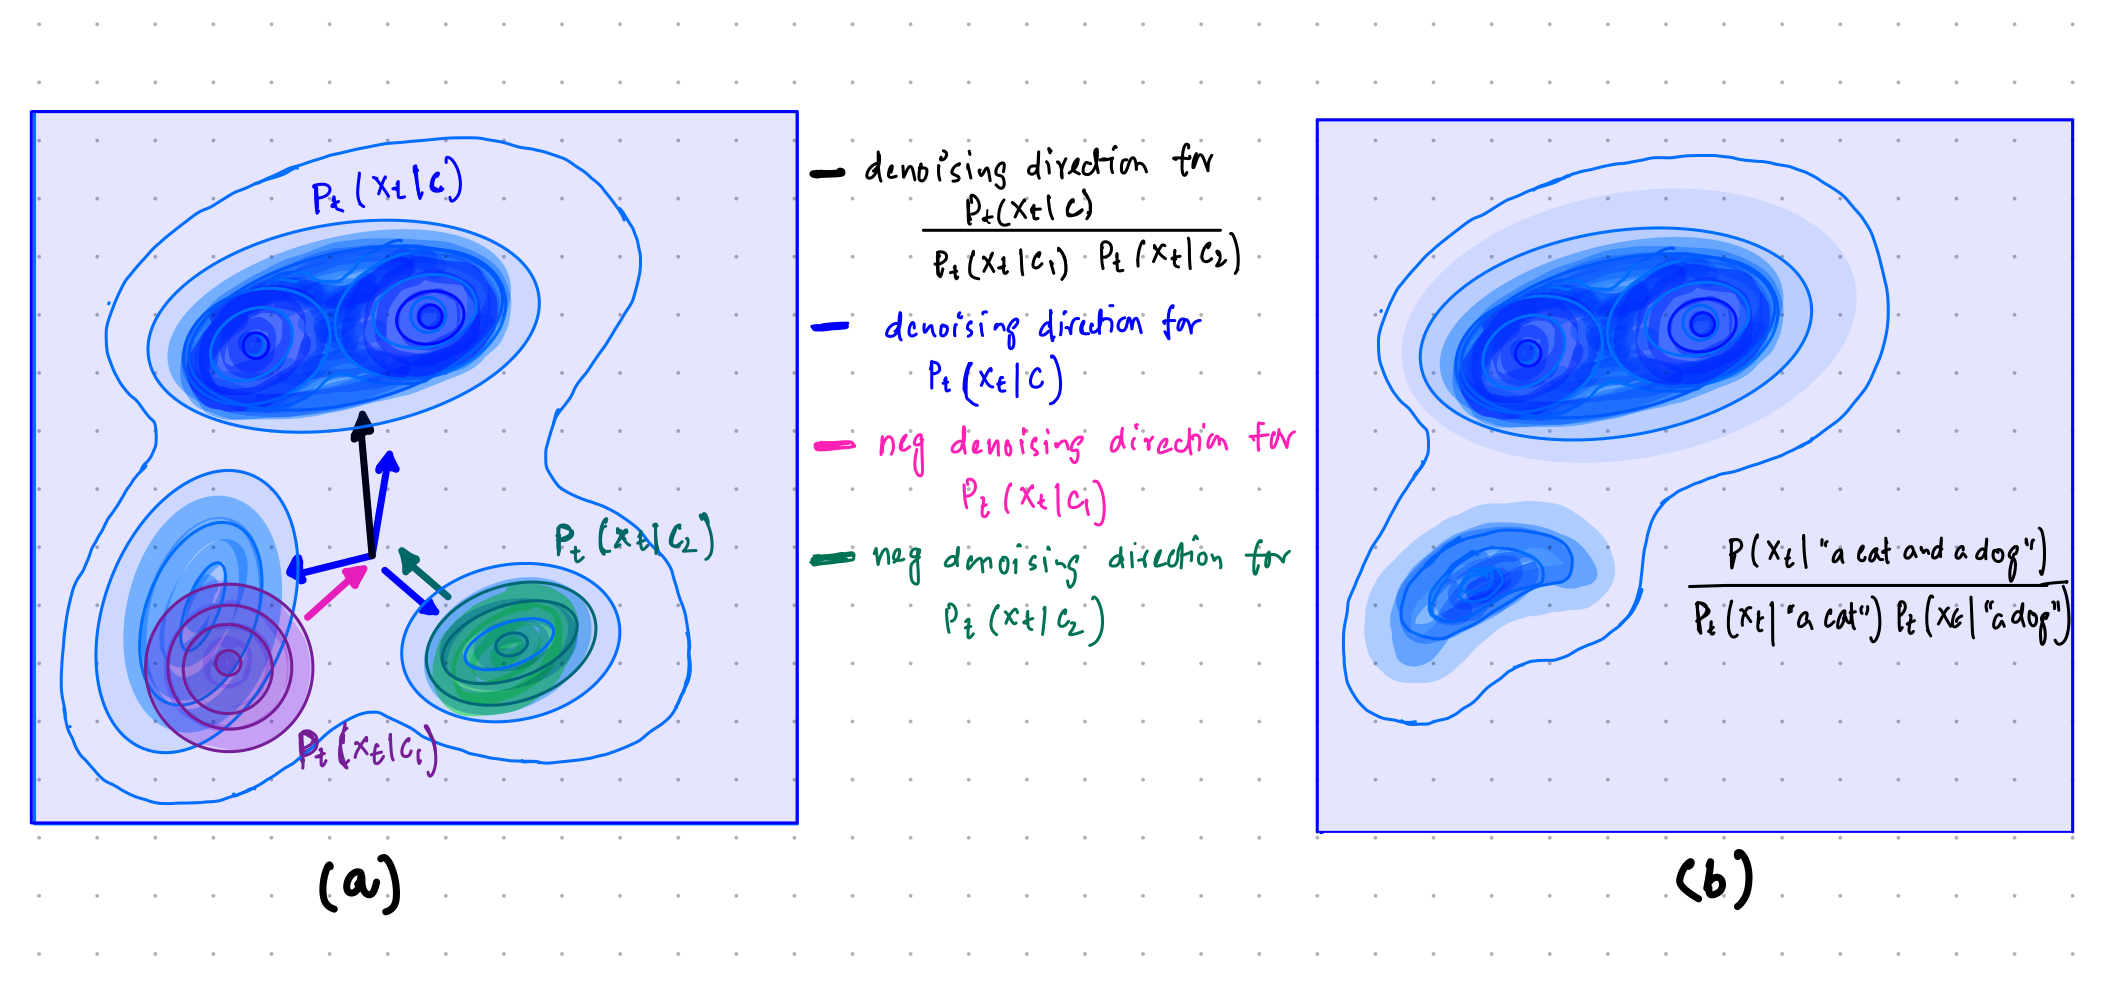 P_t (x_t | c)
P_t (x_t | c_2)
P_t (x_t | c_1)
(a)
denoising direction for
P_t (x_t | c)
P_t (x_t | c_1) P_t (x_t | c_2)
denoising direction for
P_t (x_t | c)
neg denoising direction for
P_t (x_t | c_1)
neg denoising direction for
P_t (x_t | c_2)
P (x_t | "a cat and a dog")
P_t (x_t | "a cat") P_t (x_t | "a dog")
(b)